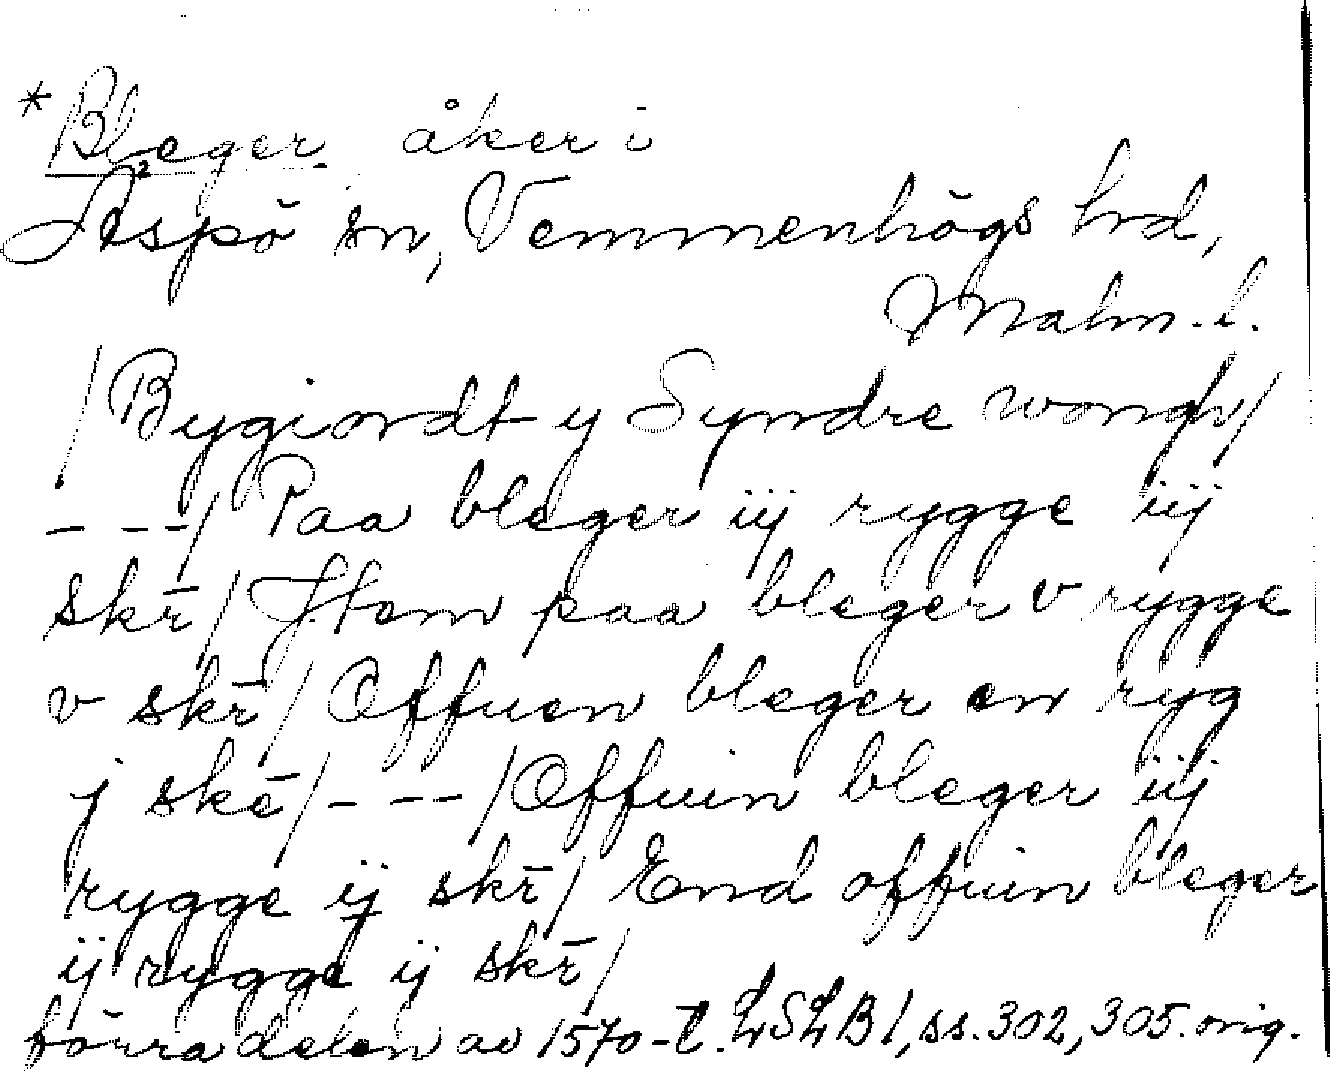 *Bleger, åker i
Äspö sn, Vemmenhögs hrd,
Malm. l.
/Bygiordt y Syndre wongh/
- - -/ Paa bleger iij rygge iij
skr̄/ Jtem paa bleger v rygge
v skr̄/ Offuen bleger en ryg
j skē/- - -/Offuin bleger iij
rygge ij skr̄/ End offuin bleger
ij rygge ij skr̄/
förra delen av 1570-t. LSLB 1, ss. 302, 305. orig.